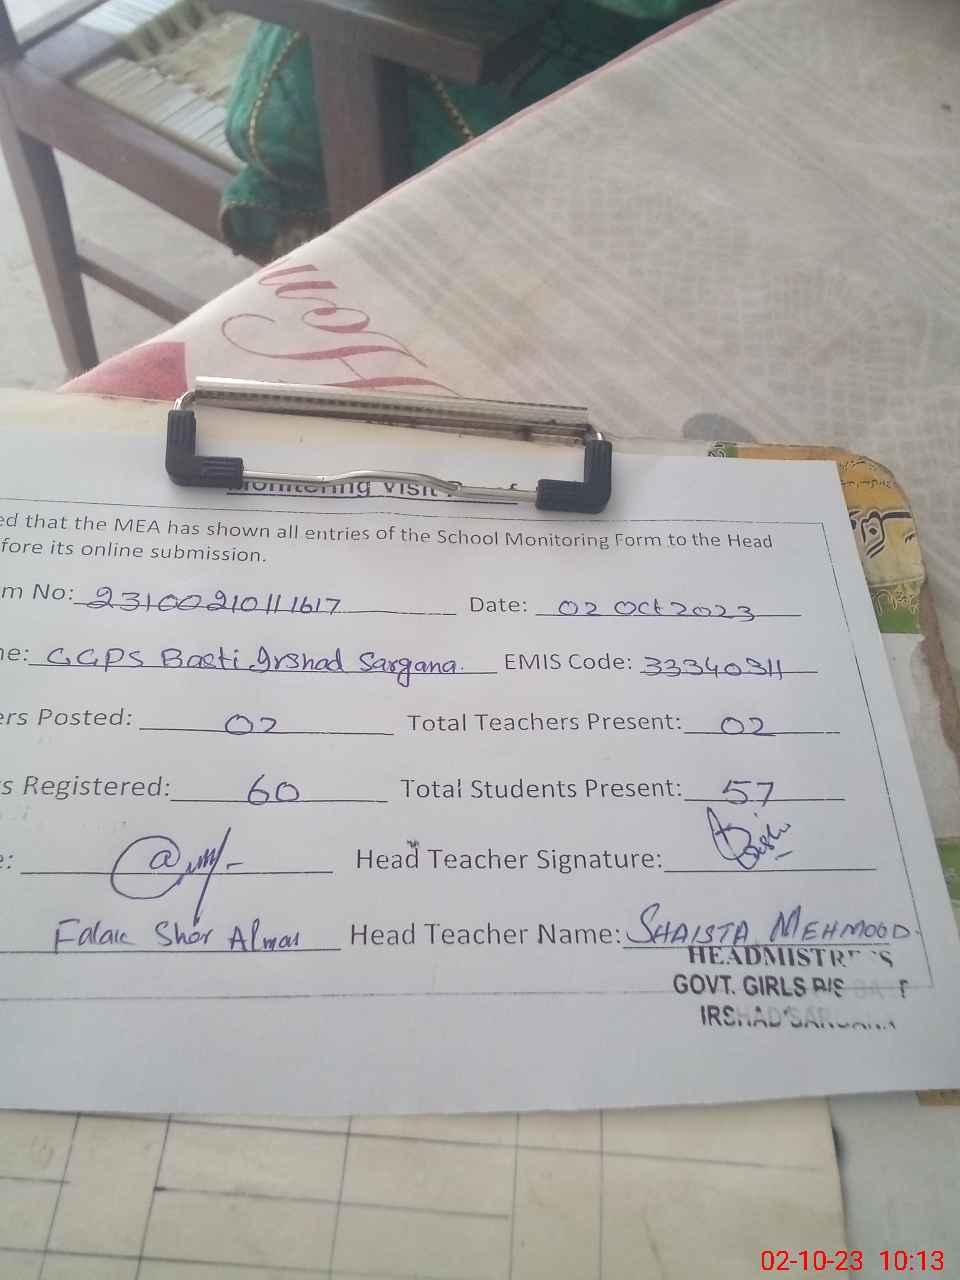 Hom
Monitoring Visit
ed that the MEA has shown all entries of the School Monitoring Form to the Head
fore its online submission.
m No: 23100210111617 Date: 02 Oct 2023
ne: GGPS Basti Irshad Sargana. EMIS Code: 33340311
ers Posted: 02 Total Teachers Present: 02
s Registered: 60 Total Students Present: 57
e: Head Teacher Signature:
Falak Sher Head Teacher Name: SHAISTA MEHMOOD.
HEADMISTRESS
GOVT. GIRLS P/S
IRSHAD SARGANA
02-10-23 10:13